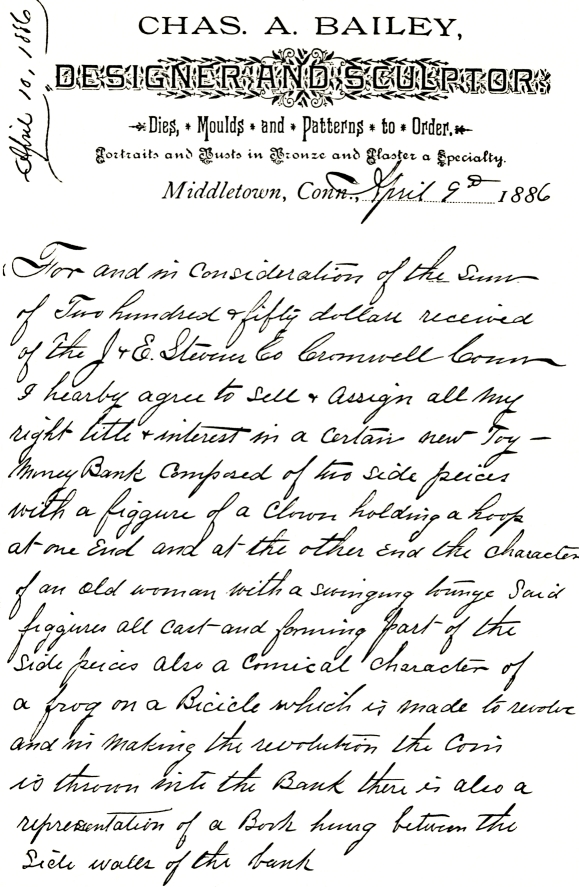 April 10, 1886
CHAS. A. BAILEY,
DESIGNER AND SCULPTOR.
Dies, * Moulds * and * Patterns * to * Order.
Portraits and Busts in Bronze and Plaster a Specialty.
Middletown, Conn., April 9th 1886
For and in consideration of the sum
of Two hundred & fifty dollars received
of the J & E. Stevens Co Cromwell Conn
I hearby agree to Sell & Assign all my
right title & interest in a certain new Toy –
Money Bank Composed of two side peices
with a figgure of a Clown holding a hoop
at one End and at the other End the Character
of an old woman with a swinging tounge Said
figgures all Cast and forming part of the
Side peices also a Comical Character of
a frog on a Bicicle which is made to revolve
and in making the revolution the Coin
is thrown into the Bank there is also a
representation of a Book hung between the
Side walls of the bank